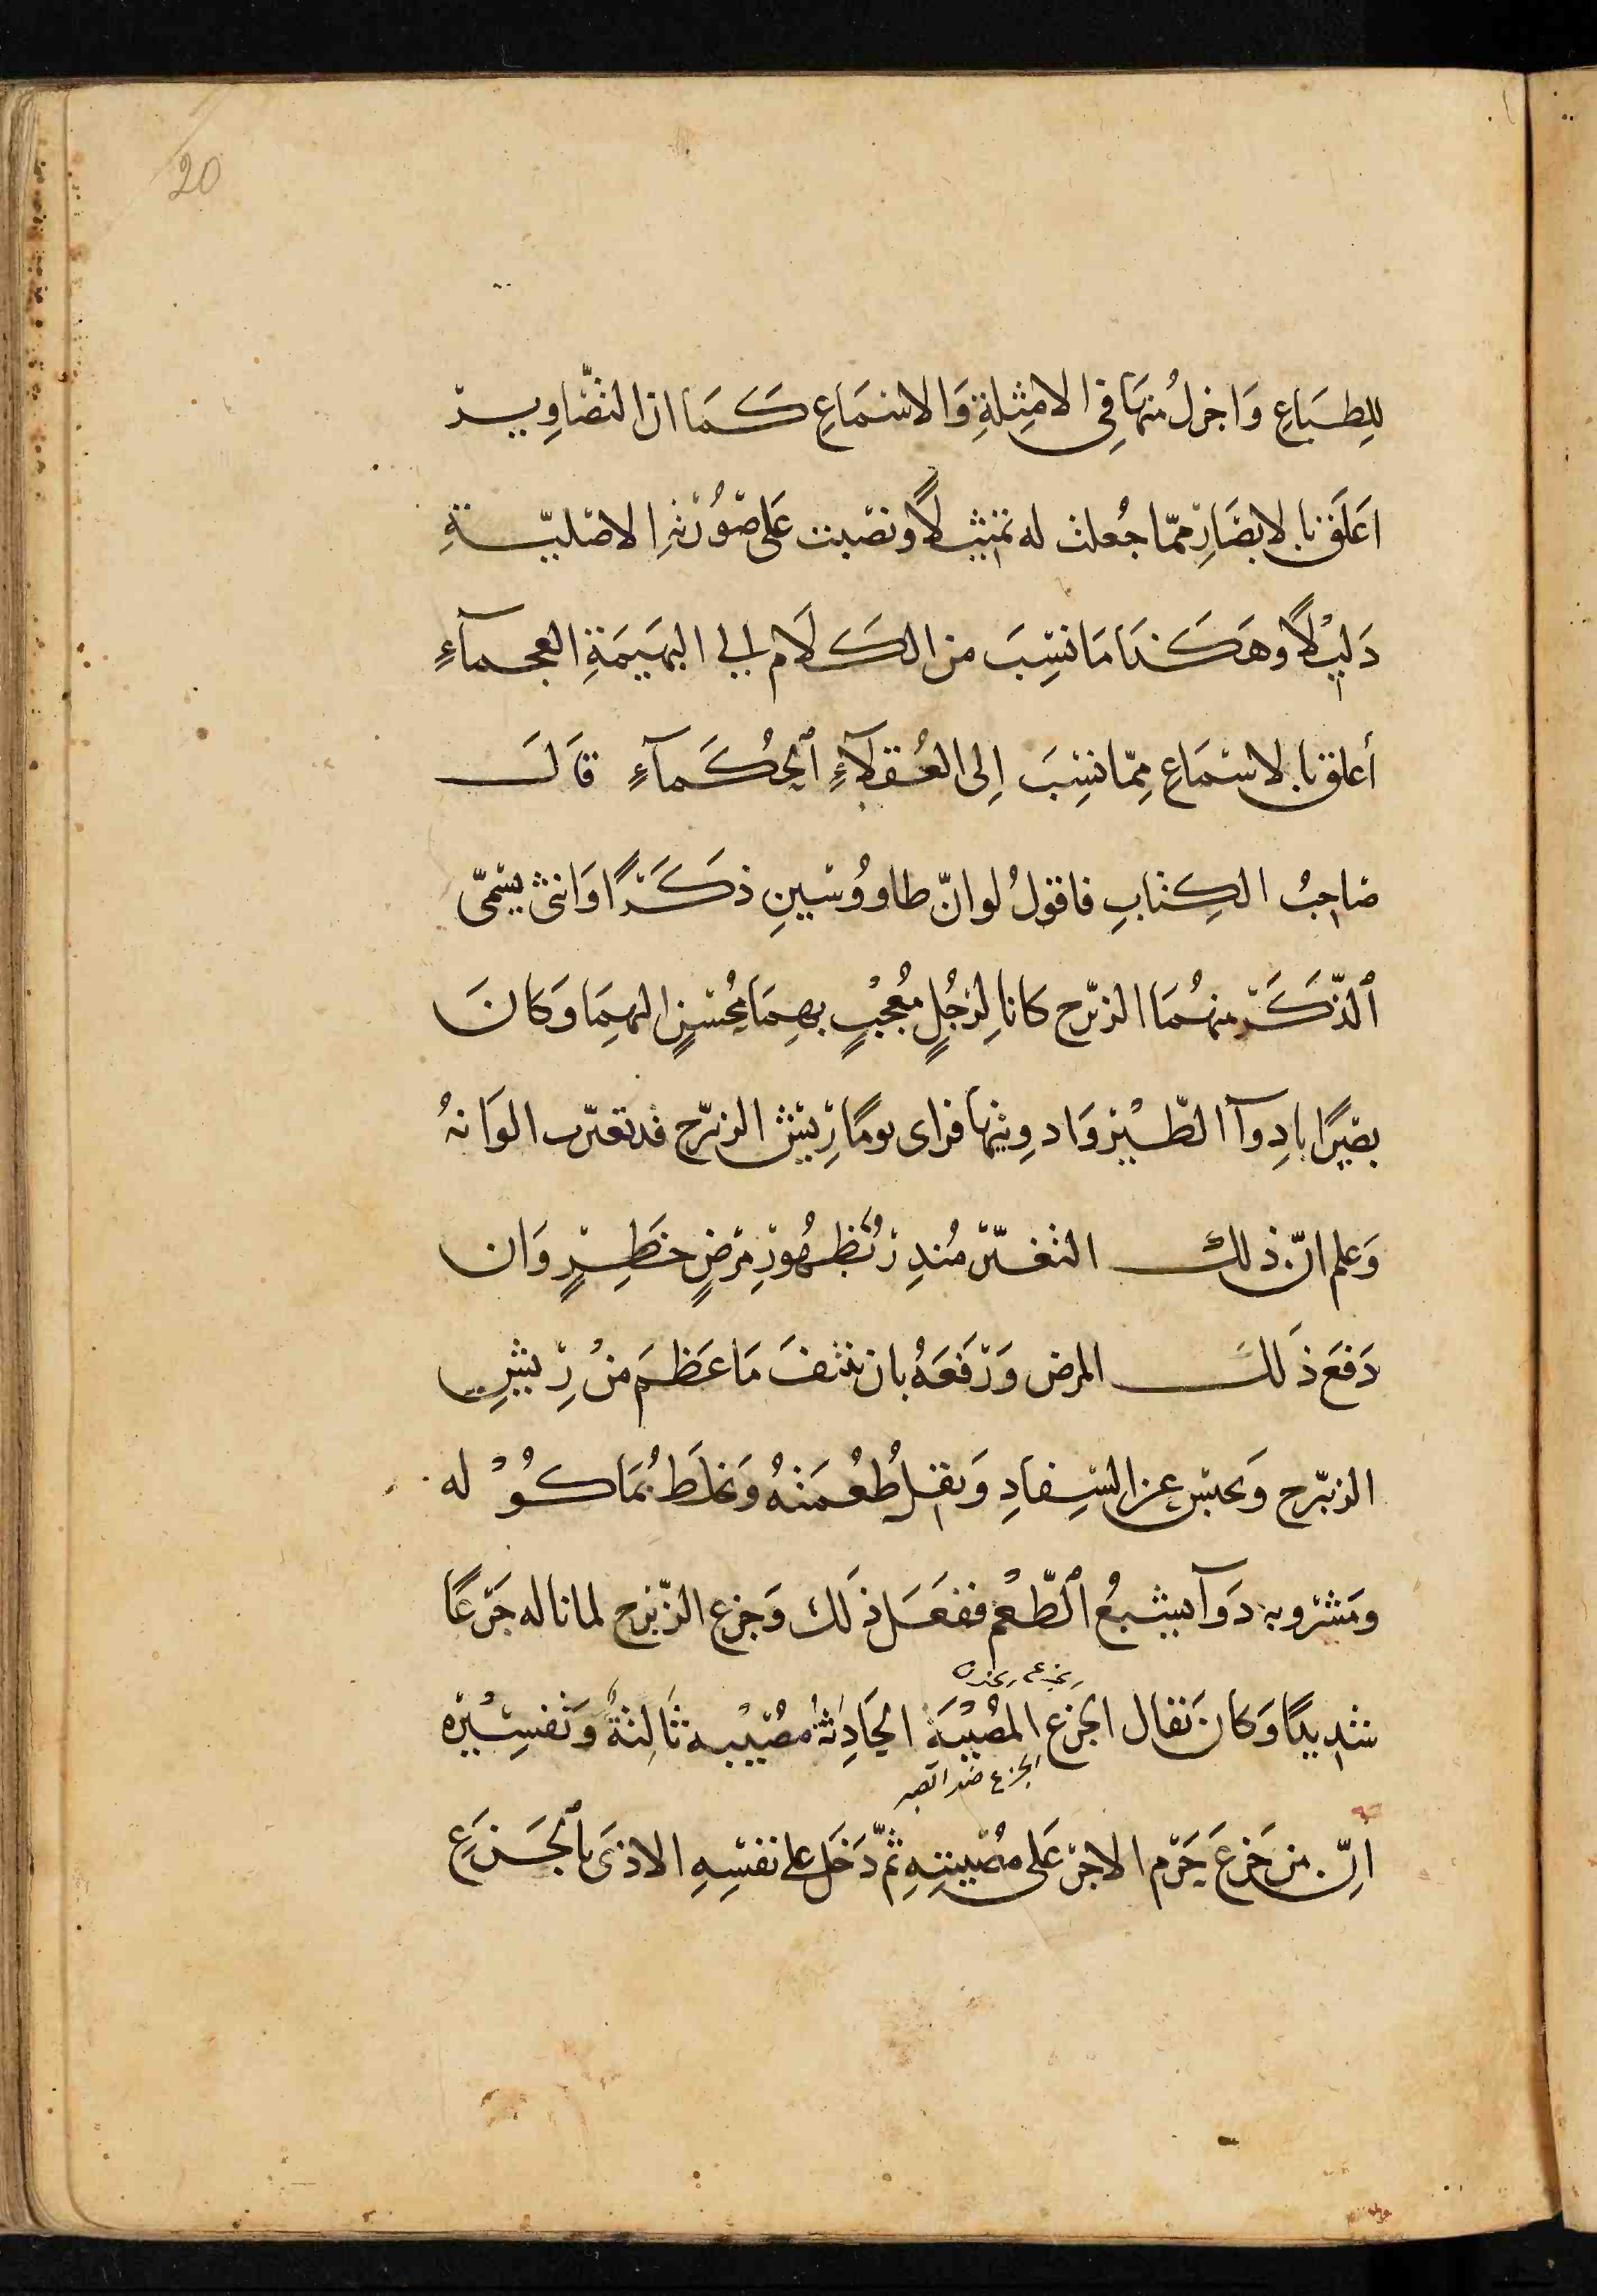 20
للِطِبَاعِ وَاجزلُ منهَا فِى الامثِلةِ وَالاسْمَاعِ كَمَا ان التصَّاوِير
اعَلَق بالابصَارِ ممّا جُعلت له تمثيلًا ونصبت عَلى صوُرته الاصليّةِ
دَليْلًا وهَكَذَا مَا نسِبَ من الكَلَام الى البهَيمَةِ العجمآءِ
أعلق بالاسْمَاعِ مِمّا نسِبَ اِلى العُقلآءِ ٱلحُكَمآءِ قَالَ
صَاحِبُ الكِتابِ فاقولُ لو انّ طاووُسَينِ ذكَرًا وَانثى يسَمّى
ٱلذّكَر منهُمَا الزبرّج كانا لِرَجُلٍ مُعجْبٍ بهِمَا مُحْسِنٍ الهِمَا وَكانَ
بصَيرًا بادِوآ الطّيْر وَادوِيتها فراى يومًا رِيش الزبرّج قد تغيّرت الوَانهُ
وَعلم انّ ذلك التغيّر مُنذِرٌ بُظهُورِ مرَضٍ خطِيرٍ وَان
دَفعَ ذَلك المرض وَرَفعَهُ بان ينتفَ مَا عَظمَ منُ رِيشِ
الزبرّج وَيحبَس عن السِفادِ وَيقلل طُعُمَتهُ وَيخلَط بُمَاكُوْله
ومَشروبه دَوآ بيشعُ ٱلطّعْم ففعَل ذَلك وَجزع الزّبرج لما ناله جزَعًا
يجزع جزعا
شدِيدًا وَكان يقال الجزع المصُيْبَة الحَادِثة مصُيْبه ثَالِثةٌ وَتفسِيْره
الجزع ضد الصبر
اِنّ من جَزعَ حَرَم الاجرَ عَلى مصُيبتِهِ ثمّ دَخَل على نفسِهِ الاذىَ بٱلجَزَعِ